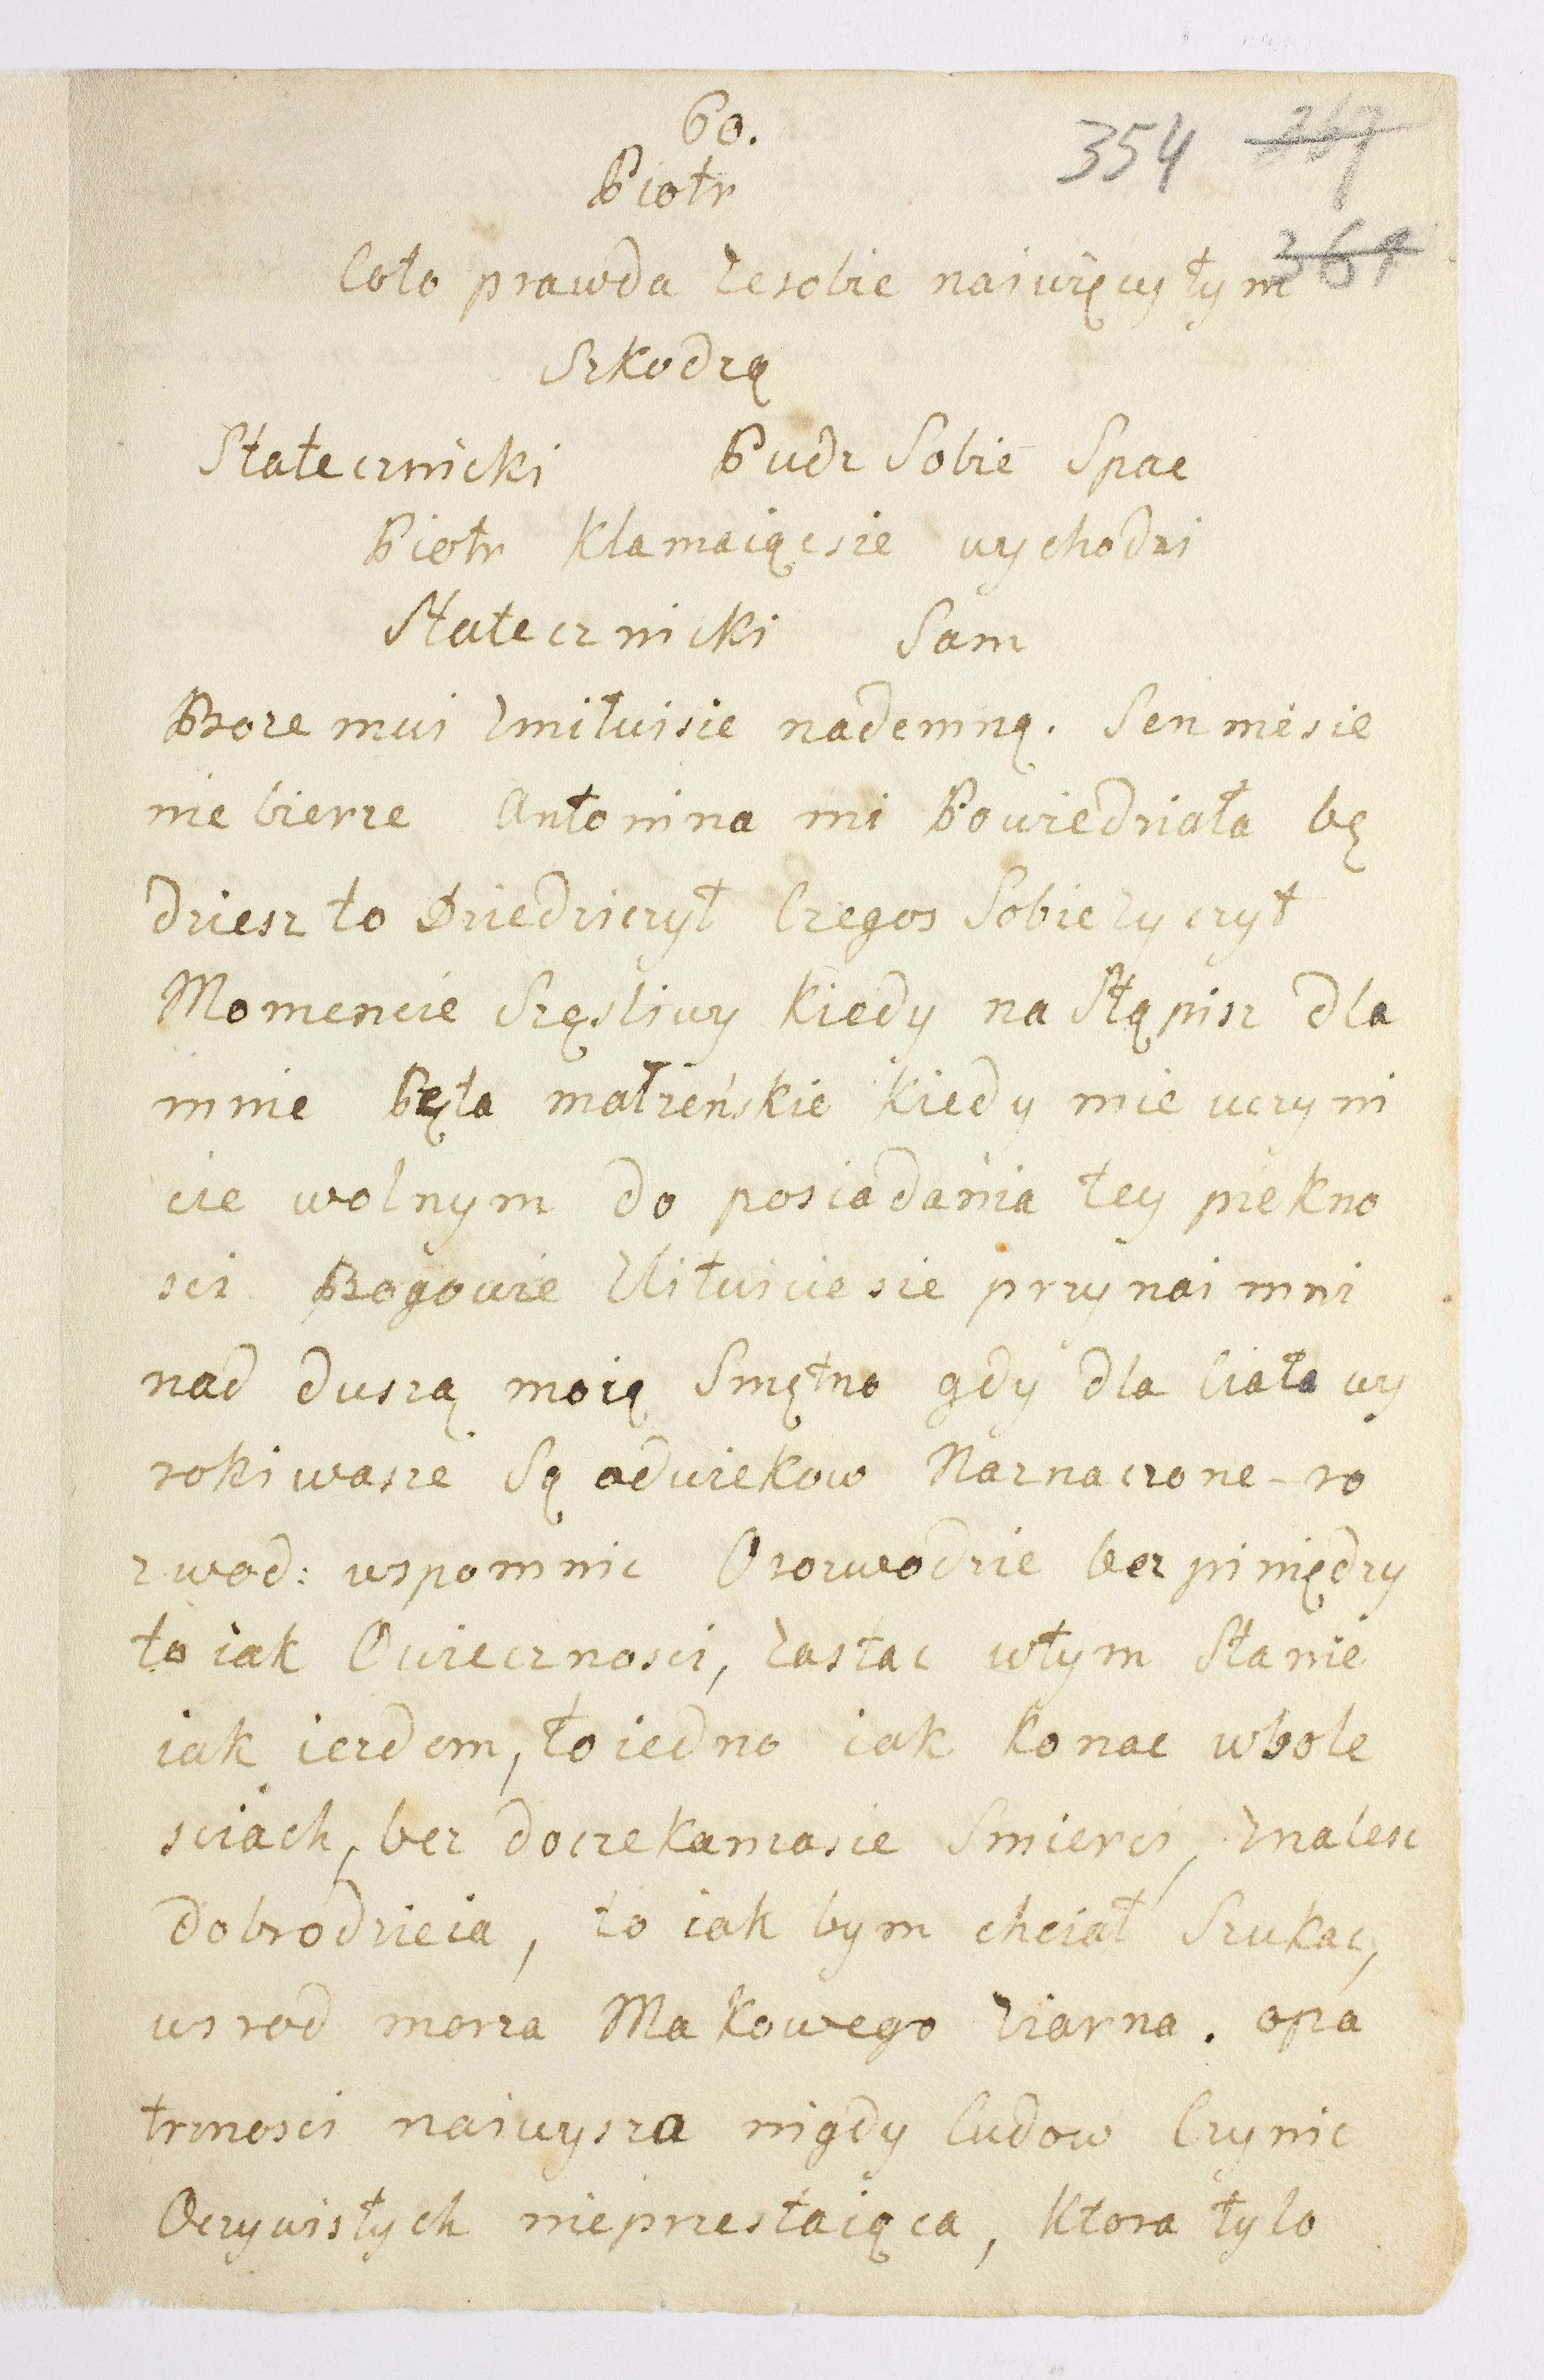 60.
354 267
Piotr
364
Coto prawda zesobie naiwięcy tym
Szkodzą
Statecznicki Pudz Sobie Spac
Piotr Klamaiącsie wychodzi
Statecznicki Sam
Boze mui Zmiłuisie nademną. Sen miesie
nie bierze Antonina mi Powiedziała bę
dziesz to Dziedziczył Czegos Sobie zyczył
Momencie Szęsliwy Kiedy na Stąpisz dla
mnie Pęta małzeńskie Kiedy mie uczyni
cie wolnym do posiadania tey piekno
sci. Bogowie Zlituiciesie przynaimni
nad duszą moią Smętno gdy dla Ciała wy
roki wasze Są odwiekow Naznaczone - ro
zwod: wspomnic Orozwodzie bez piniędzy
to iak Owiecznosci, Zastac wtym Stanie
iak iezdem, to iedno iak Konac wbole
sciach, bez doczekaniasie Smierci, Znalesc
dobrodzieia, to iak bym chciał Szukac,
wsrod morza Makowego Ziarna. opa
trznosci naiwysza nigdy Cudow Czynic
Oczywistych nieprzestaiąca, Ktora tylo